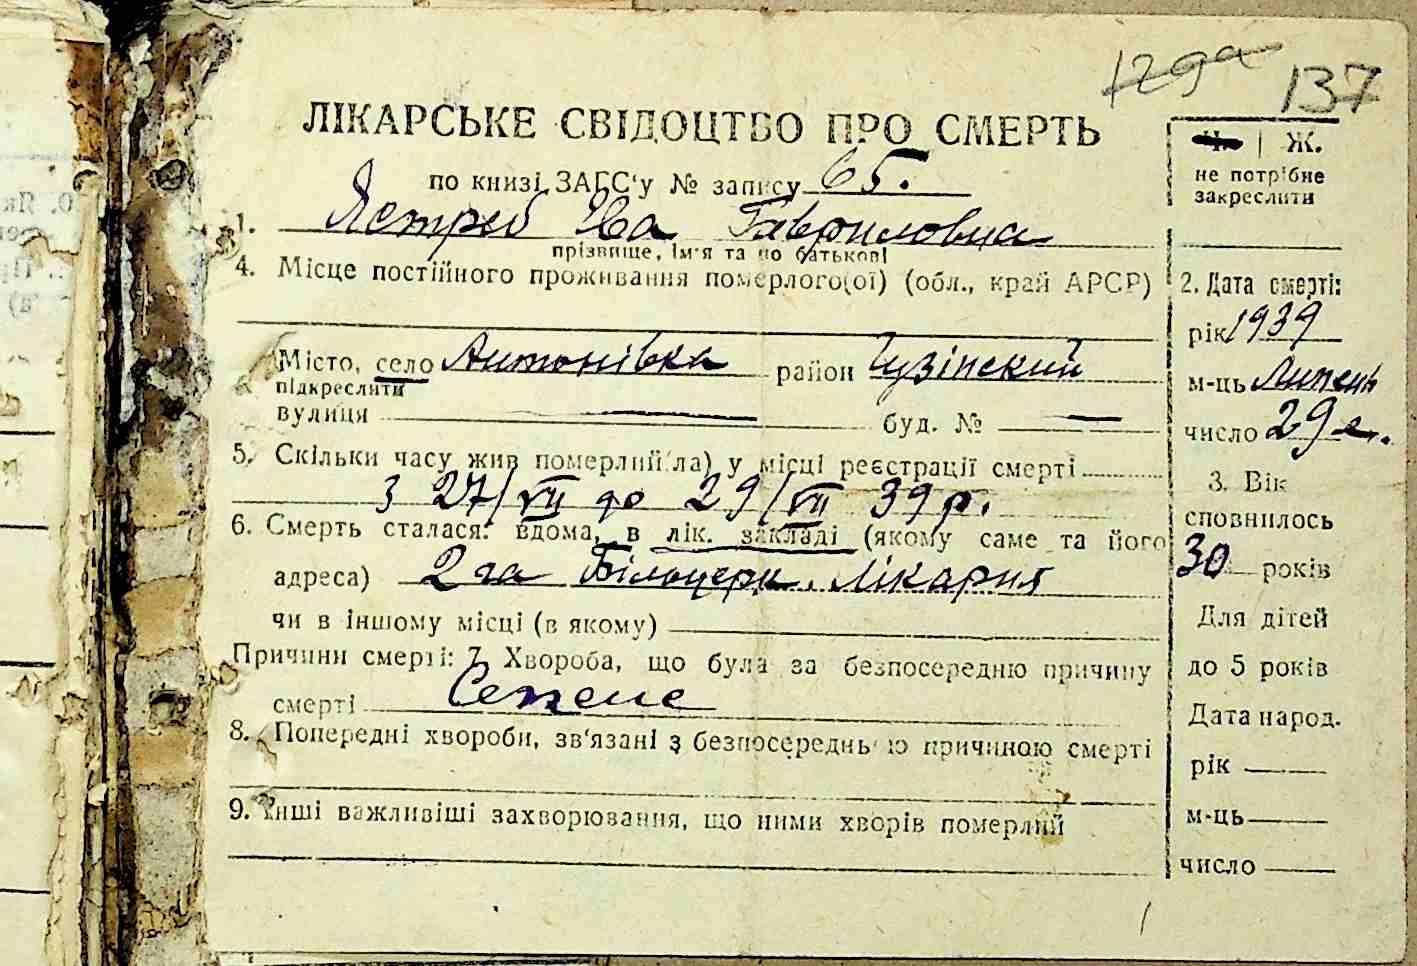 129а 137
ЛІКАРСЬКЕ СВІДОЦТВО ПРО СМЕРТЬ
по книзі ЗАГС'у № запису 65.
1. Ястреб Ева Гавриловна
прізвище, ім'я та по батькові
4. Місце постійного проживання померлого(ої) (обл., край АРСР)
Місто, село Антонівка район
підкреслити
вулиця — буд. № —
5. Скільки часу жив померлий(ла) у місці реєстрації смерті
з 27/VII до 29/VII 39 р.
6. Смерть сталася: вдома, в лік. закладі (якому саме та його
адреса) 2га Більоцерк. Лікарня
чи в іншому місці (в якому)
Причини смерті: 7. Хвороба, що була за безпосередню причину
смерті Сепсис
8. Попередні хвороби, зв'язані з безпосередньою причиною смерті
9. Інші важливіші захворювання, що ними хворів померлий
Ч. | Ж.
не потрібне
закреслити
2. Дата смерті:
рік 1939
м-ць Липень
число 29
3. Вік
сповнилось
30 років
Для дітей
до 5 років
Дата народ.
рік —
м-ць —
число —